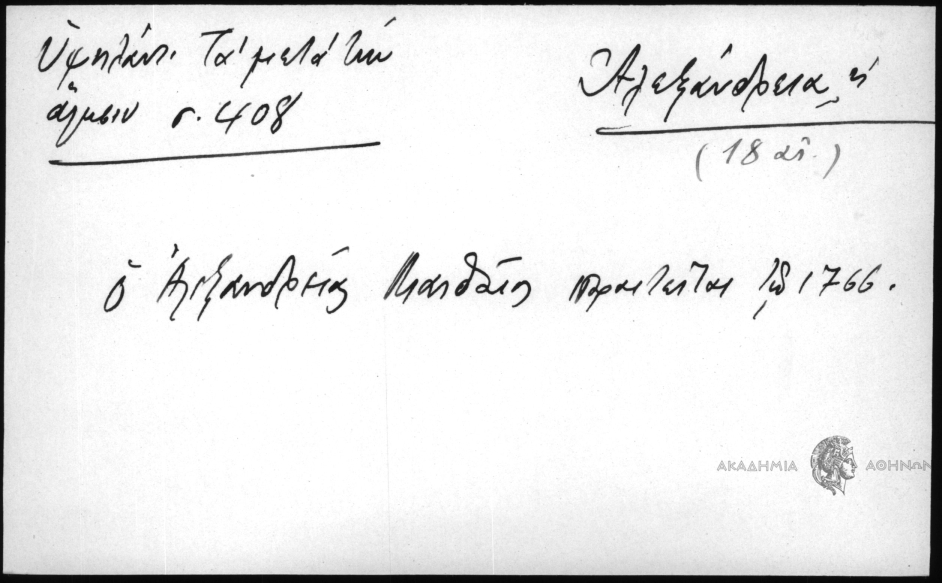 Ὑψηλάντ. Τά μετά τήν
ἅλωσιν σ. 408
Ἀλεξάνδρεια, ἡ
(18 αἰ.)
ὁ Ἀλεξανδρείας Ματθαῖος παραιτεῖται τῷ 1766.
ΑΚΑΔΗΜΙΑ ΑΘΗΝΩΝ